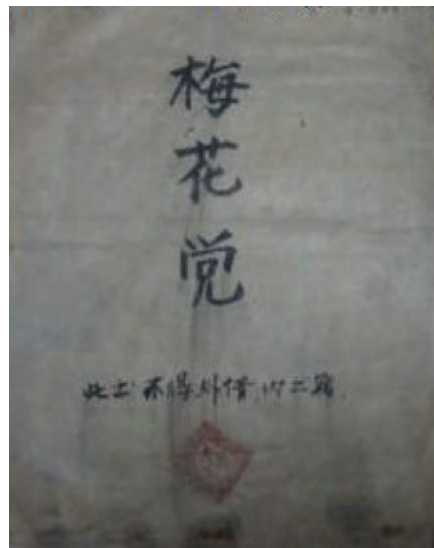 梅花党
此书不得外借